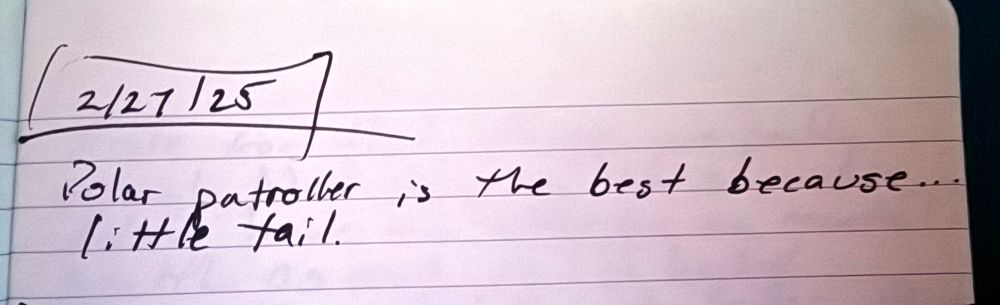 2/27/25
Polar patroller is the best because...
little tail.